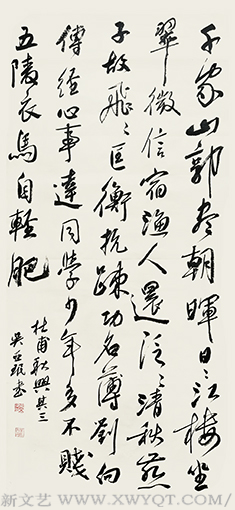 千家山郭靜朝暉日〻江樓坐
翠微信宿漁人還泛〻清秋燕
子故飛〻匡衡抗疏功名薄劉向
傳經心事違同學少年多不賤
五陵衣馬自輕肥
杜甫秋興其三
吴
新文艺 WWW.XWYQT.COM/